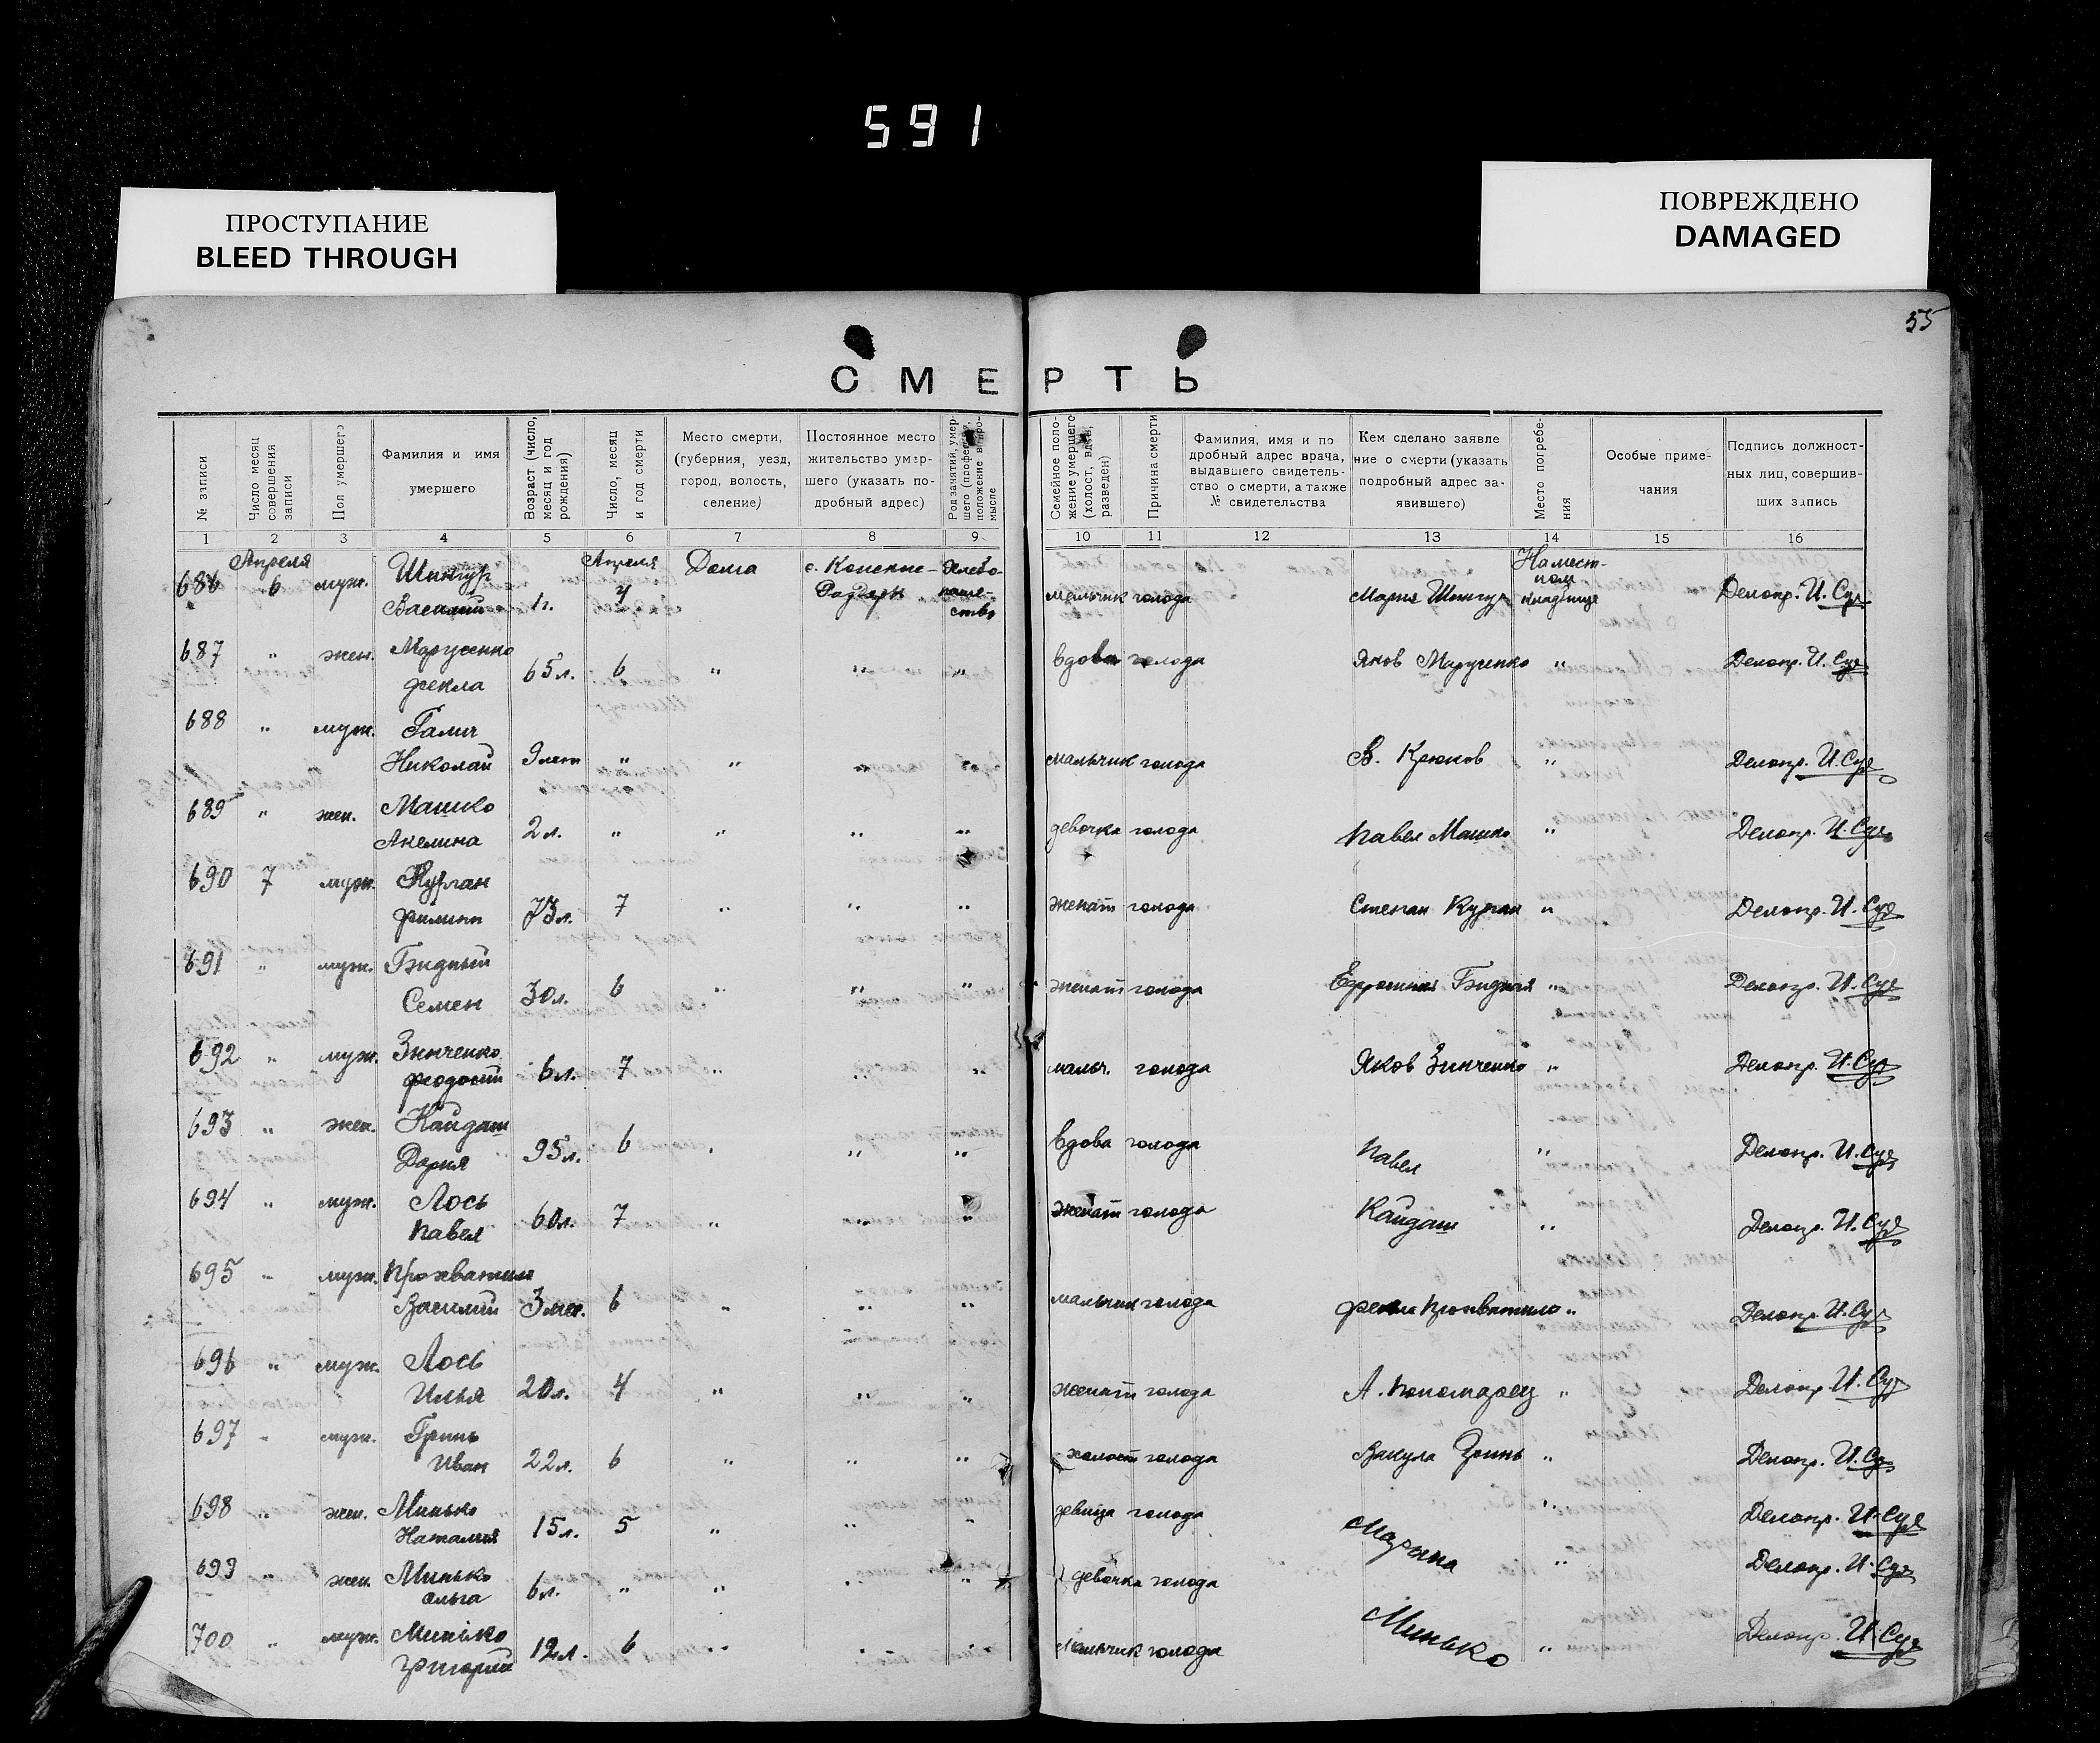 591
ПРОСТУПАНИЕ
BLEED THROUGH
ПОВРЕЖДЕНО
DAMAGED
55
СМЕРТЬ
№ записи
Число месяц совершения записи
Пол умершего
Фамилия и имя умершего
Возраст (число, месяц и год рождения)
Число, месяц и год смерти
Место смерти, (губерния, уезд, город, волость, селение)
Постоянное место жительство умершего (указать подробный адрес)
Род занятий, умершего (профессия, положение в промысле
Семейное положение умершего (холост, вдов, разведен)
Причина смерти
Фамилия, имя и подробный адрес врача, выдавшего свидетельство о смерти, а также № свидетельства
Кем сделано заявление о смерти (указать подробный адрес заявившего)
Место погребения
Особые примечания
Подпись должностных лиц, совершивших запись
1 2 3 4 5 6 7 8 9 10 11 12 13 14 15 16
686 Апреля 6 муж. Шингур Василий 1 г. Апреля 4 Дома с. Хлебопашество мальчик голода Мария Шингур На местном кладбище Делопр. И. Суя
687 " жен. Марученко Фекла 65 л. 6 " " " вдова голода Яков Марученко " Делопр. И. Суя
688 " муж. Галич Николай 9 лет " " " " мальчик голода В. Крюков " Делопр. И. Суя
689 " жен. Машко Акелина 2 л. " " " " девочка голода Павел Машко " Делопр. И. Суя
690 7 муж. Курган Филипп 73 л. 7 " " " женат голода Степан Курган " Делопр. И. Суя
691 " муж. Бидный Семен 30 л. 6 " " " женат голода Ефросиния Бидная " Делопр. И. Суя
692 " муж. Зинченко Феодосий 6 л. 7 " " " мальч. голода Яков Зинченко " Делопр. И. Суя
693 " жен. Кайдаш Дария 95 л. 6 " " " вдова голода Павел " Делопр. И. Суя
694 " муж. Лось Павел 60 л. 7 " " " женат голода Кайдаш " Делопр. И. Суя
695 " муж. Прохватило Василий 3 мес. 6 " " " мальчик голода Фекла Прохватило " Делопр. И. Суя
696 " муж. Лось Илья 20 л. 4 " " " женат голода А. Пономарец " Делопр. И. Суя
697 " муж. Гринь Иван 22 л. 6 " " " холост голода Вакула Гринь " Делопр. И. Суя
698 " жен. Минько Наталия 15 л. 5 " " " девица голода Марина " Делопр. И. Суя
699 " жен. Минько Ольга 6 л. " " " " девочка голода " Делопр. И. Суя
700 " муж. Минько Григорий 12 л. 6 " " " мальчик голода Минько " Делопр. И. Суя